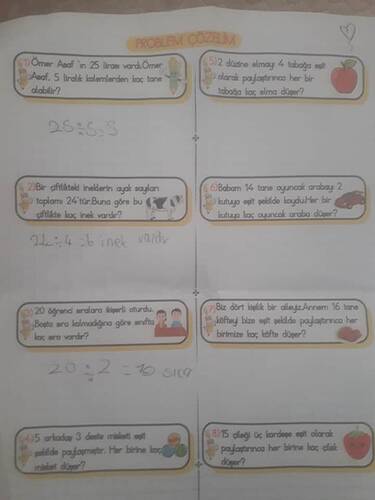 PROBLEM ÇÖZELİM
1) Ömer Asaf 'ın 25 lirası vardı.Ömer
Asaf, 5 liralık kalemlerden kaç tane
alabilir?
25÷5=5
2) Bir çiftlikteki ineklerin ayak sayıları
toplamı 24'tür.Buna göre bu
çiftlikte kaç inek vardır?
24÷4=6 inek vardır
3) 20 öğrenci sıralara ikişerli oturdu.
Boşta sıra kalmadığına göre sınıfta
kaç sıra vardır?
20÷2=10 sıra
4) 5 arkadaş 3 deste misketi eşit
şekilde paylaşmıştır. Her birine kaç
misket düşer?
5) 2 düzine elmayı 4 tabağa eşit
olarak paylaştırınca her bir
tabağa kaç elma düşer?
6) Babam 14 tane oyuncak arabayı 2
kutuya eşit şekilde koydu.Her bir
kutuya kaç oyuncak araba düşer?
7) Biz dört kişilik bir aileyiz.Annem 16 tane
köfteyi bize eşit şekilde paylaştırınca her
birimize kaç köfte düşer?
8) 15 çileği üç kardeşe eşit olarak
paylaştırınca her birine kaç çilek
düşer?